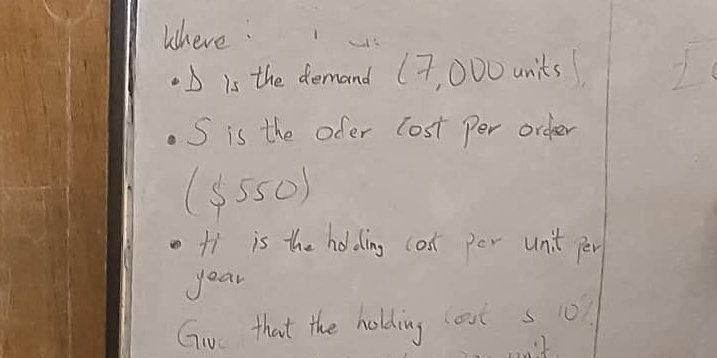 Where :
• D is the demand (7,000 units).
• S is the oder cost per order
($550)
• H is the holding cost per unit per
year
that the holding cost s 10%
unit